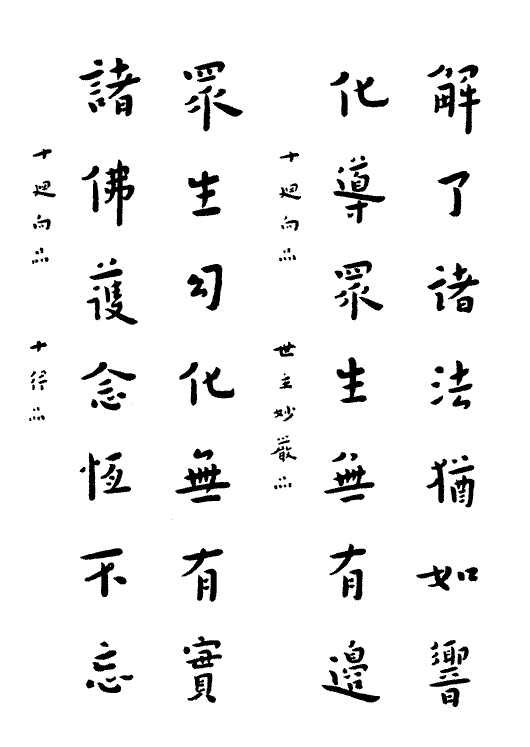 解了諸法猶如響
化導眾生無有邊
十迴向品 世主妙嚴品
眾生幻化無有實
諸佛護念恆不忘
十迴向品 十 品